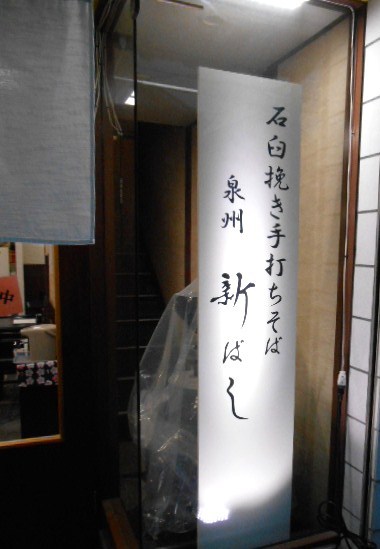 石臼挽き手打ちそば
泉州
新ばし
中